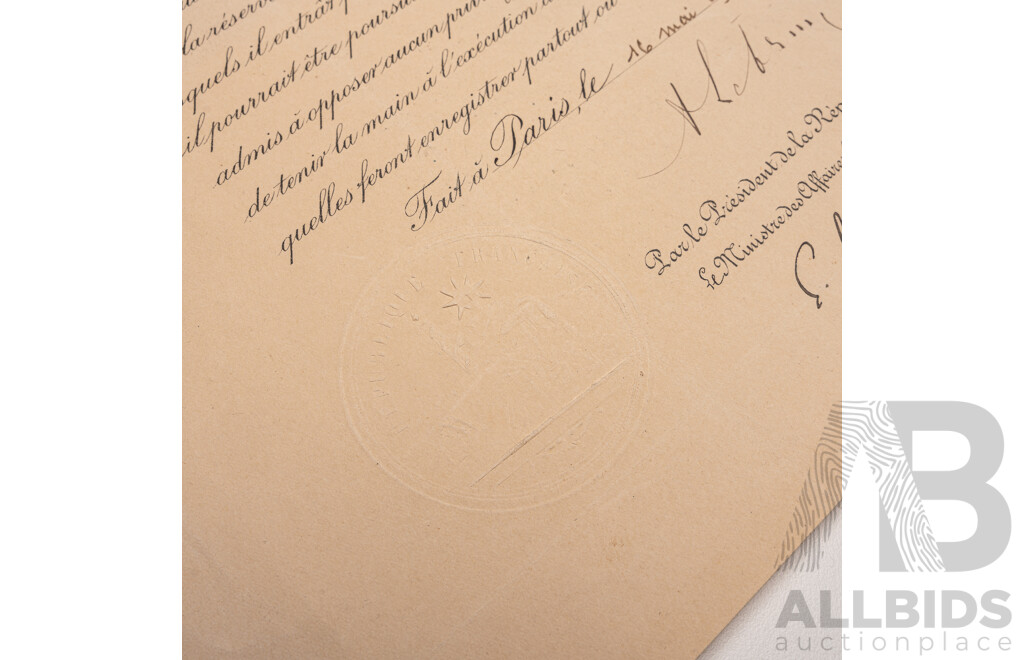 la réserve
squels il entrât
il pourrait être poursui
admis à opposer aucun priv
de tenir la main à l'exécution d
quelles feront enregistrer partout ou
Fait à Paris, le 16 mai
Par le Président de la Rép
Le Ministre des Affaires
RÉPUBLIQUE FRANÇAISE
AB
ALLBIDS
auctionplace